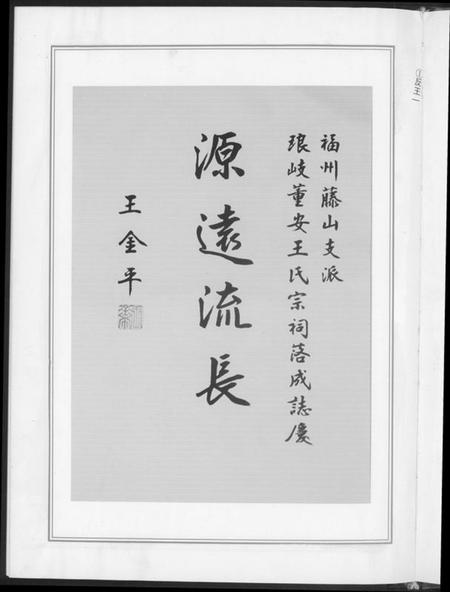 福州藤山支派
琅岐董安王氏宗祠落成誌慶
源遠流長
王金平